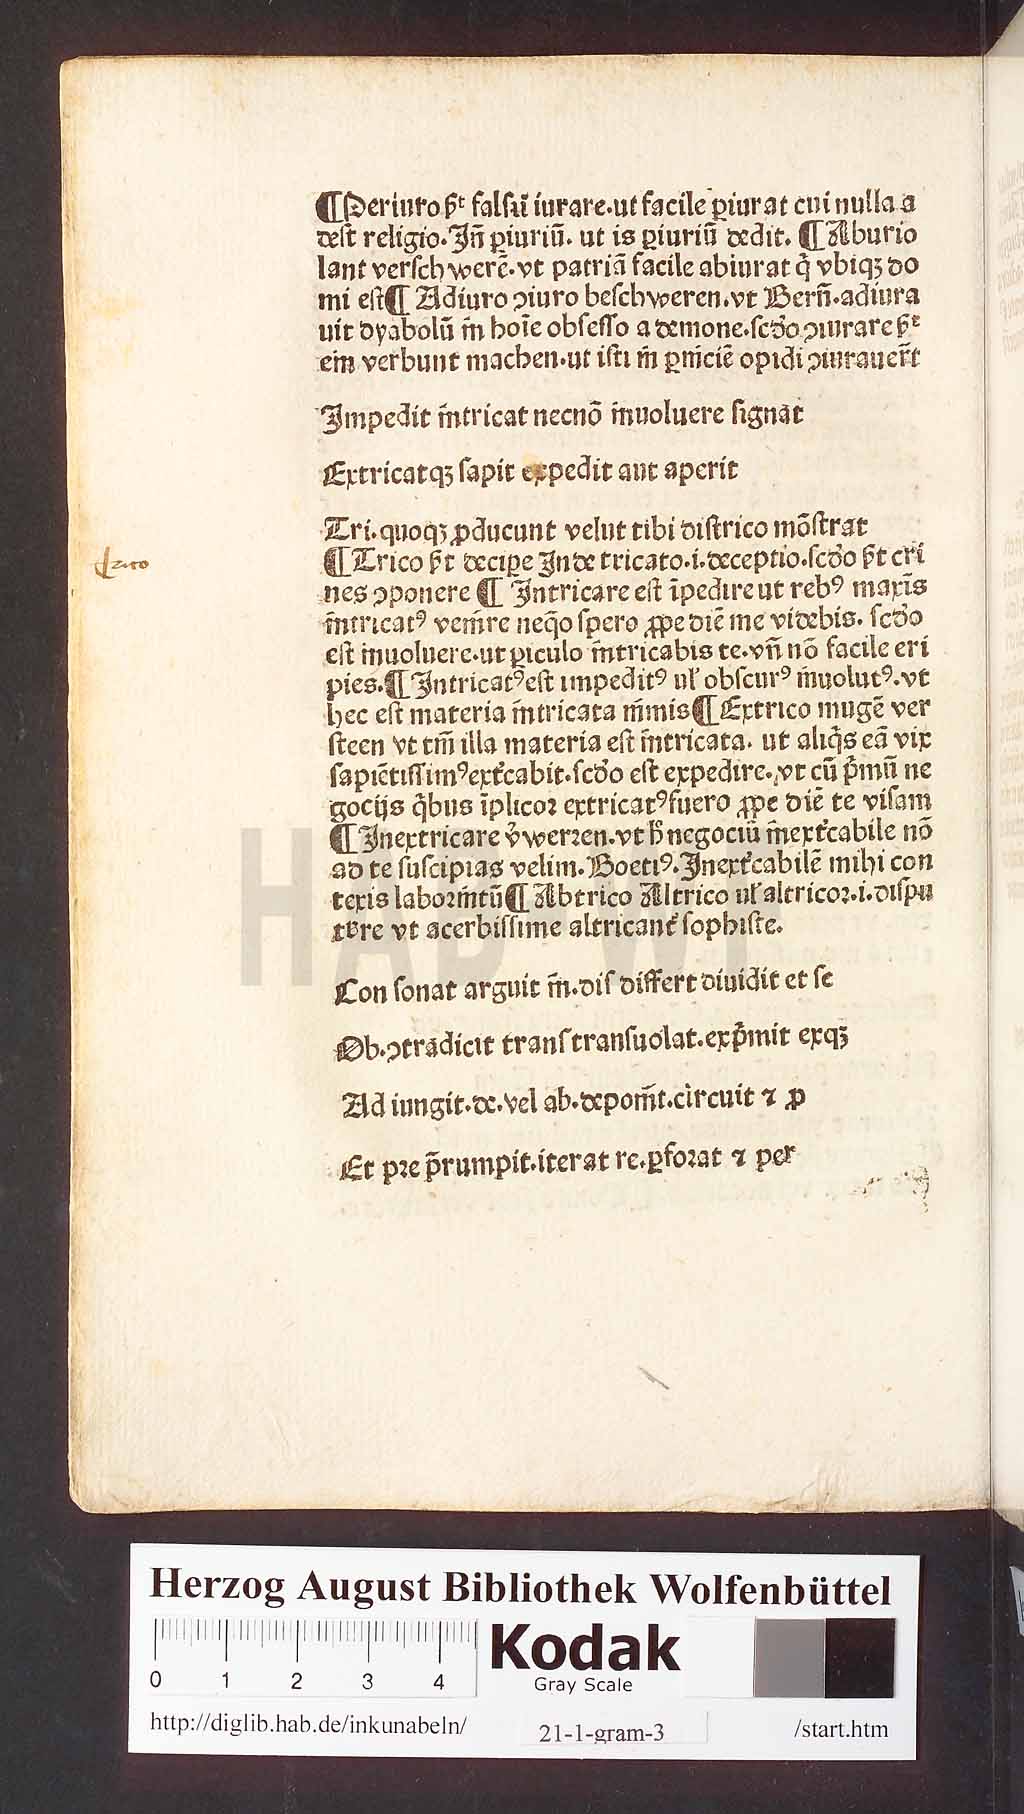 ¶Periuro p̄ᵗ falsū iurare.ut facile ꝑiurat cui nulla a
dest religio.Jn̄ ꝑiuriū. ut is ꝑiuriū dedit. ¶Aburio
lant verschwerē.vt patriā facile abiurat q̄ vbiqꝫ do
mi est¶ Adiuro ꝯiuro beschweren.vt Bern̄.adiura
uit dyabolū in hoīe obsesso a demone.scd̄o ꝯiurare p̄ᵗ
ein verbunt machen.ut isti in ꝑniciē opidi ꝯiurauer̄t
Jmpedit intricat necnō inuoluere signat
Extricatqꝫ sapit expedit aut aperit
Tri.quoqꝫ ꝓducunt velut tibi districo mōstrat
¶Trico p̄t decipe Jnde tricato.i.deceptio.scd̄o p̄t cri
nes ꝯponere ¶ Jntricare est īpedire ut rebꝰ maxīs
intricatꝰ venire neq̄o spero ꝓpe diē me videbis. scd̄o
est inuoluere.ut ꝑiculo intricabis te.vn̄ nō facile eri
pies.¶Jntricatꝰest impeditꝰ ul̄ obscurꝰ inuolutꝰ.vt
hec est materia intricata nimis¶Extrico mugē ver
steen vt tm̄ illa materia est intricata. ut aliq̄s eā vix
sapiētissimꝰext̄cabit.scd̄o est expedire.vt cū p̄mū ne
gocijs q̄bus īplicor extricatꝰfuero ꝓpe diē te visam
¶Jnextricare v̄werren.vt h̄ negociū inext̄cabile nō
ad te suscipias velim.Boetiꝰ.Jnext̄cabilē mihi con
texis laborintū¶Abtrico Altrico ul̄ altricor.i.dispu
tare vt acerbissime altricant̄ sophiste.
Con sonat arguit in.dis differt diuidit et se
Ob.ꝯtradicit trans transuolat.exp̄mit exqꝫ
Ad iungit.de.vel ab.deponit.circuit ⁊ ꝓ
Et pre p̄rumpit.iterat re.ꝑforat ⁊ per
Trico
HAB WF
Herzog August Bibliothek Wolfenbüttel
0 1 2 3 4
Kodak
Gray Scale
http://diglib.hab.de/inkunabeln/ 21-1-gram-3 /start.htm